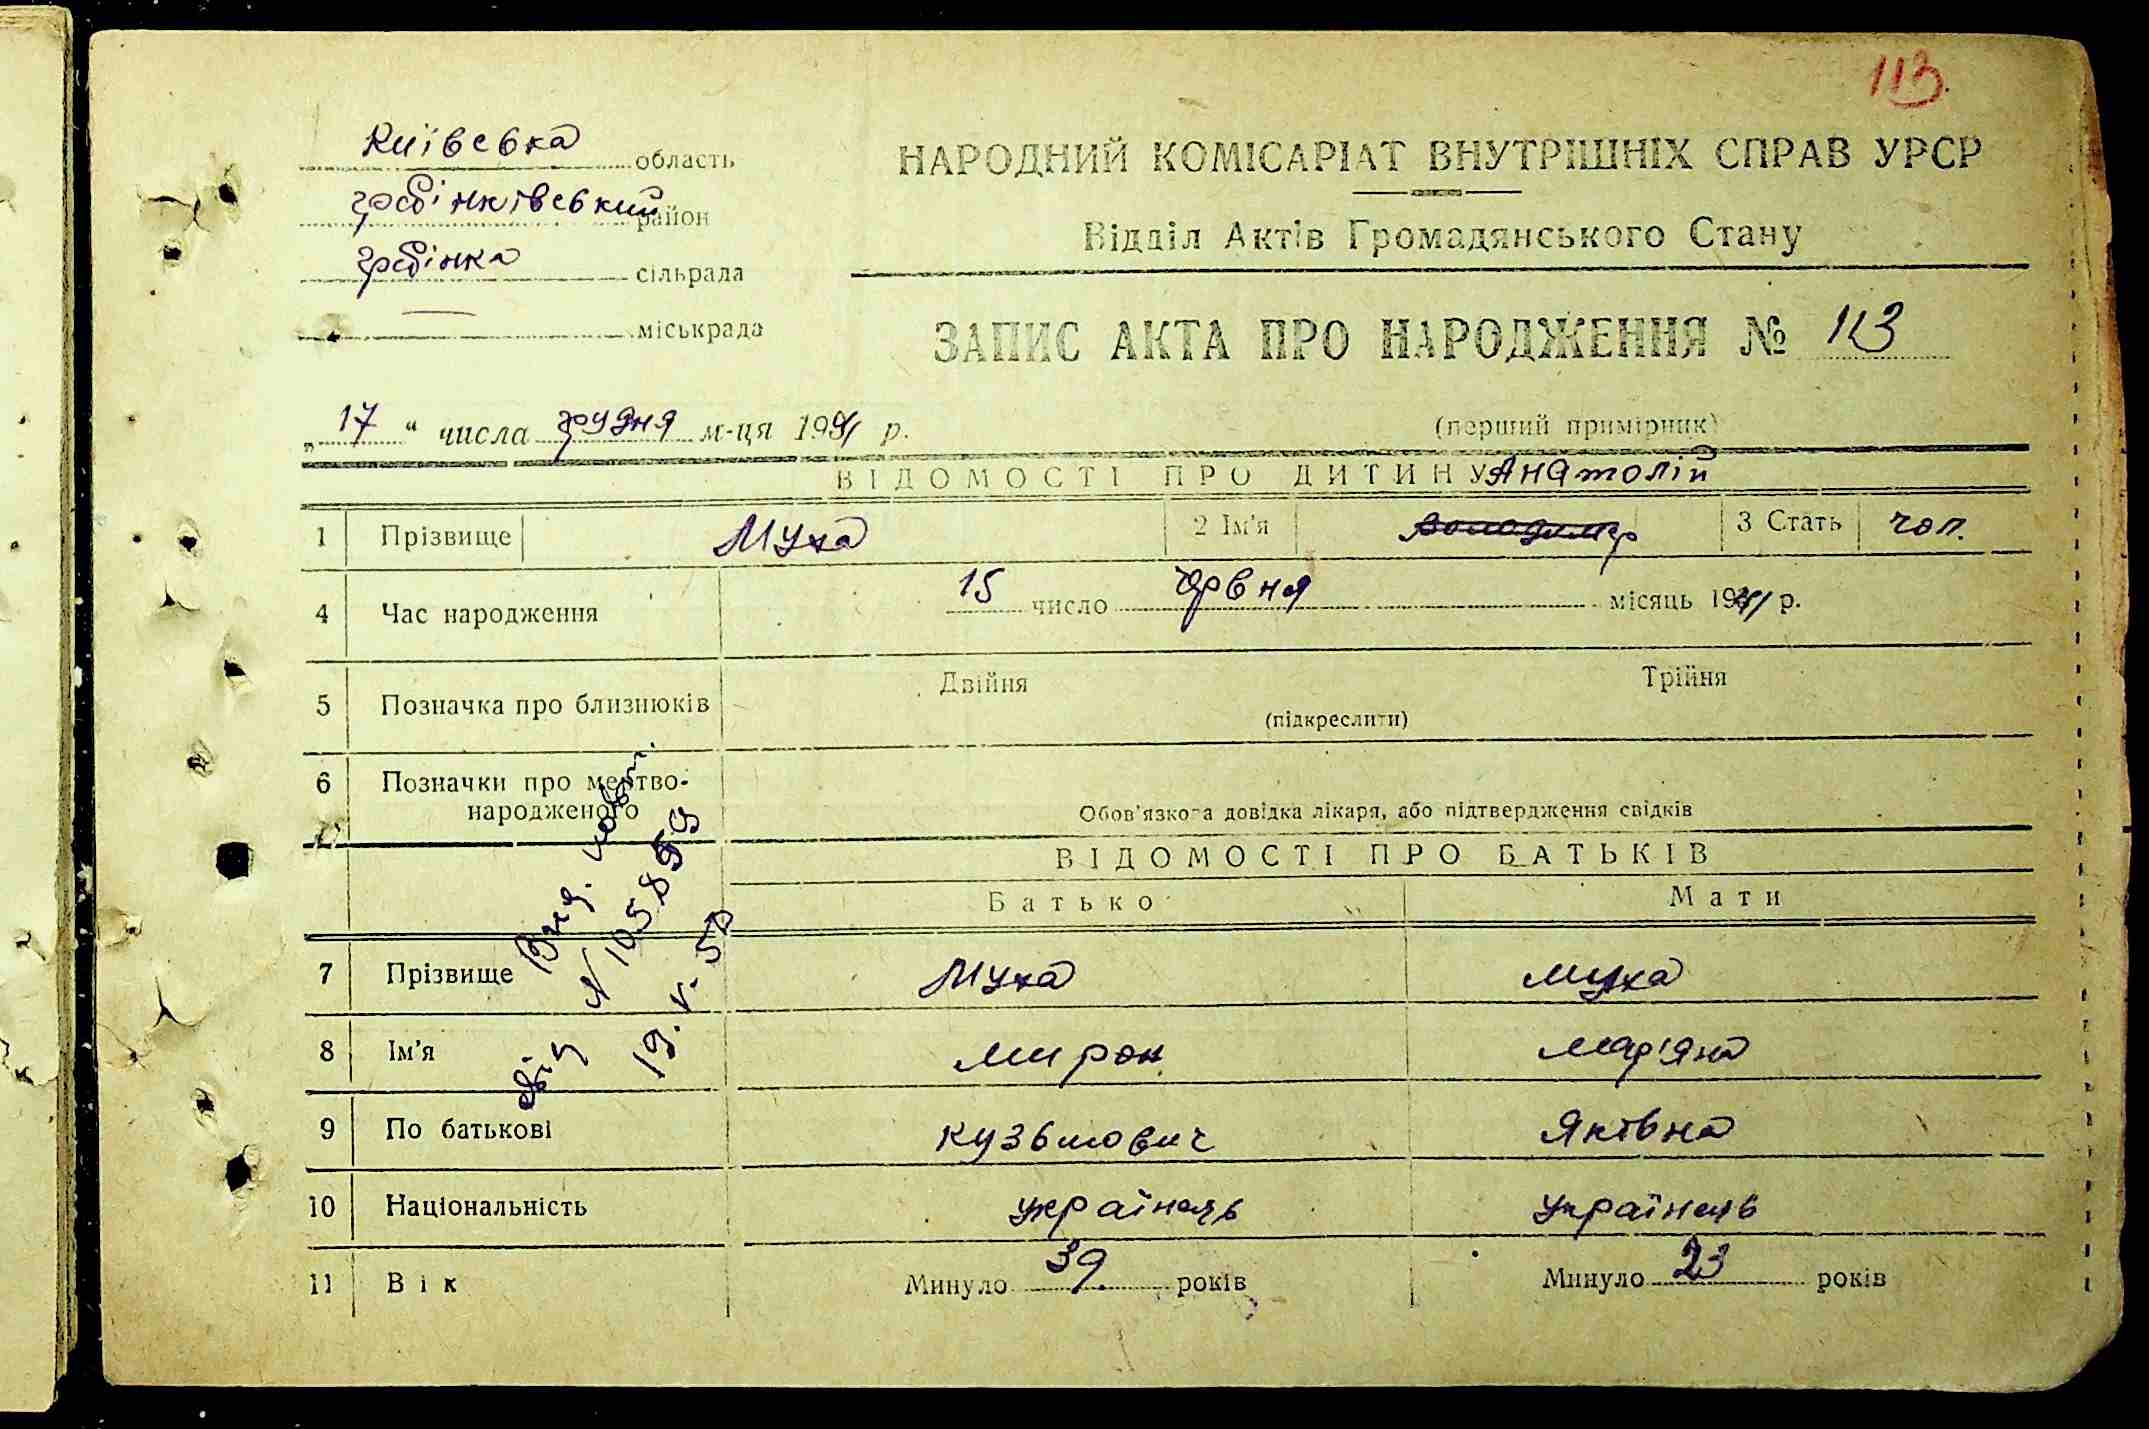 113.
Київська область
гребінківський район
гребінка сільрада
міськрада
НАРОДНИЙ КОМІСАРІАТ ВНУТРІШНІХ СПРАВ УРСР
Відділ Актів Громадянського Стану
ЗАПИС АКТА ПРО НАРОДЖЕННЯ № 113
„17“ числа грудня м-ця 1941 р.
(перший примірник)
ВІДОМОСТІ ПРО ДИТИНУ Анатолій
1 Прізвище Муха 2 Ім'я володимер 3 Стать чол.
4 Час народження 15 число червня місяць 1941 р.
5 Позначка про близнюків Двійня Трійня
(підкреслити)
6 Позначки про мертво-
народженого
Обов'язкова довідка лікаря, або підтвердження свідків
ВІДОМОСТІ ПРО БАТЬКІВ
Батько Мати
7 Прізвище Муха Муха
8 Ім'я Мирон Мар'яна
9 По батькові Кузьмович Яківна
10 Національність українець українець
11 Вік Минуло 39 років Минуло 23 років
19.V-50